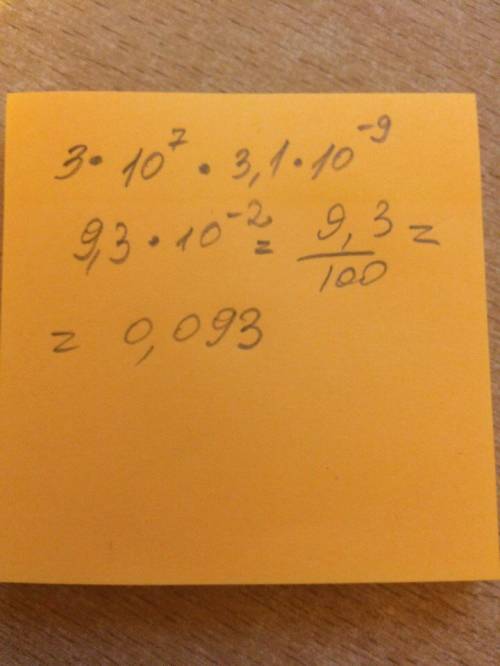 3 · 10⁷ · 3,1 · 10⁻⁹
9,3 · 10⁻² = 9,3/100 =
= 0,093